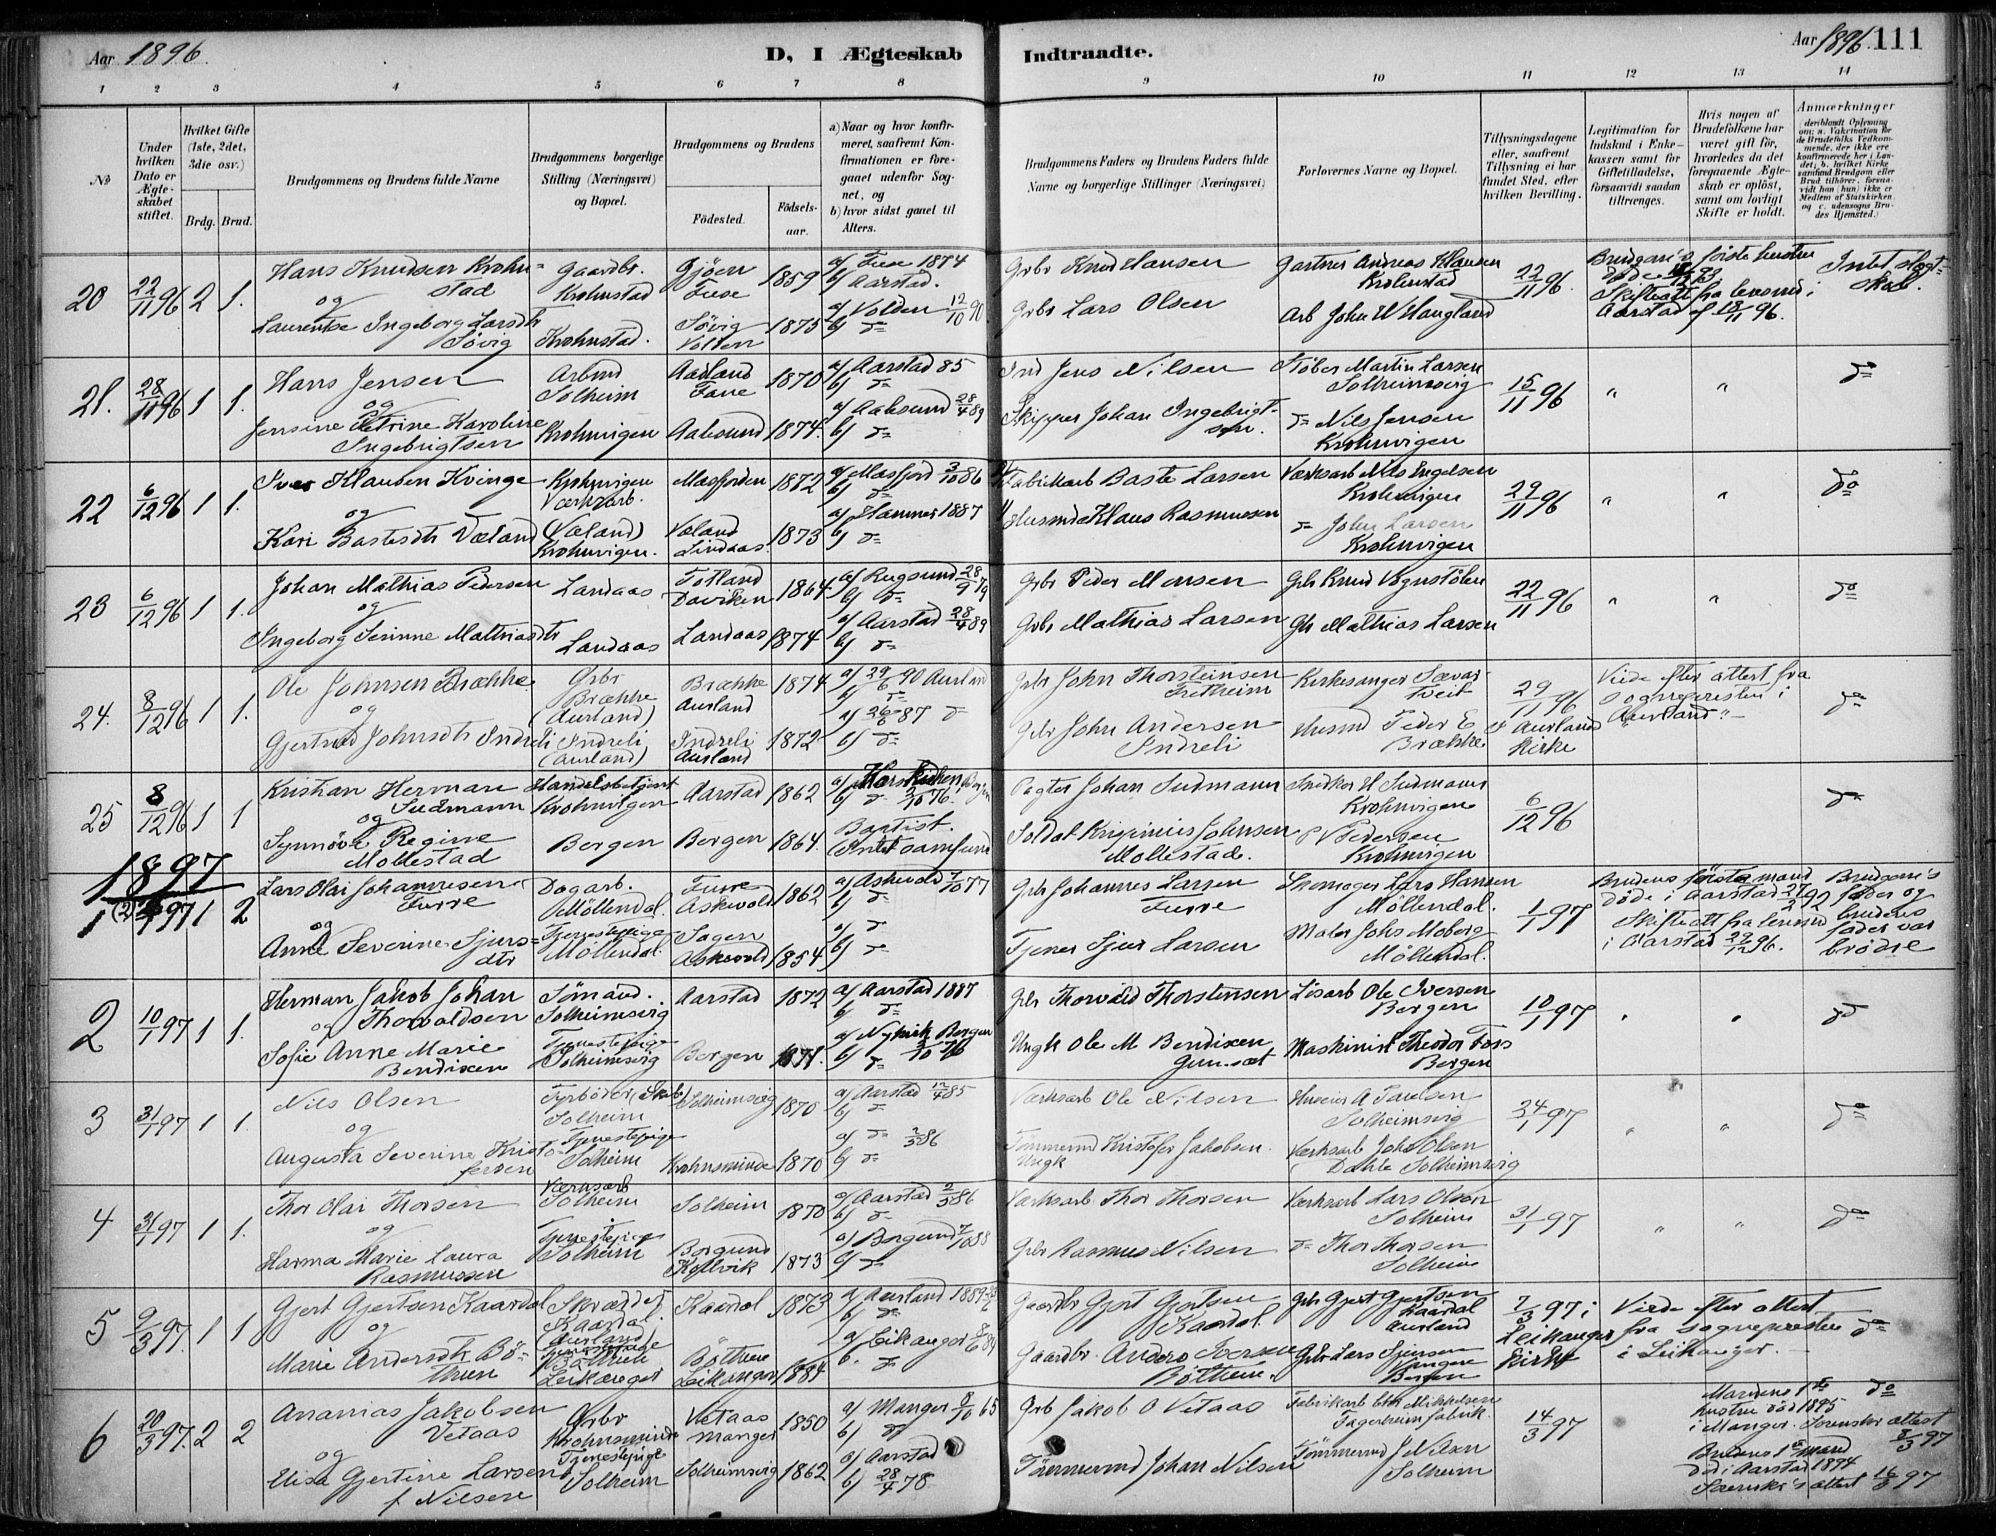 Aar 1896.
D, I Ægteskab
Indtraadte.
Aar 1896. 111
1 2 3 4 5 6 7 8 9 10 11 12 13 14
No
Under hvilken Dato er Ægteskabet stiftet.
Hvilket Gifte (1ste, 2det, 3die osv.)
Brdg. Brud.
Brudgommens og Brudens fulde Navne
Brudgommens borgerlige Stilling (Næringsvei) og Bopæl.
Brudgommens og Brudens
Födested.
Födsels-aar.
a) Naar og hvor konfirmeret, saafremt Konfirmationen er foregaaet udenfor Sognet, og
b) hvor sidst gaaet til Alters.
Brudgommens Faders og Brudens Faders fulde Navne og borgerlige Stillinger (Næringsvei)
Forlovernes Navne og Bopæl.
Tillysningsdagene eller, saafremt Tillysning ei har fundet Sted, efter hvilken Bevilling.
Legitimation for Indskud i Enkekassen samt for Giftetilladelse, forsaavidt saadan tiltrænges.
Hvis nogen af Brudefolkene har været gift för, hvorledes da det foregaaende Ægteskab er oplöst, samt om lovligt Skifte er holdt.
Anmærkninger
20 22/11 96 2 1.
Hans Knudsen Krohnstad
og
Laurentse Ingeborg Larsdtr Søvig
Gaardbr. Krohnstad
Krohnstad.
Gjøen Fuse 1859
Søvig Volden 1875
a) Fuse 1874
b) Aarstad.
a) Volden 12/10 90
b) do
Grbr Knud Hansen
Grbr Lars Olsen
Gartner Andreas Klausen Krohnstad
Arb John W Haugland
22/11 96.
Brudgom's første hustru døde
Skifteatt fra lensmd i Aarstad af 18/11 96.
Intet slægtskab.
21. 28/11 96 1 1.
Hans Jensen
og
Jensine Petrine Karoline Ingebrigtsen
Arbmd Solheim
Krohnvigen
Aadland Fane 1870
Aalesund 1874.
a) Aarstad 85
b) do
a) Aalesund 28/4 89
b) do
Ind Jens Nilsen
Skipper Johan Ingebrigtsen.
Støber Martin Larsen Solheimsvig
do Nils Jensen Krohnvigen
15/11 96
" " do
22 6/12 96 1 1.
Iver Klausen Kvinge
og
Kari Bastesdtr Væland
Krohnvigen Værksarb.
(Væland) Krohnvigen.
Masfjorden 1872
Væland Lindaas 1873
a) Masfjord 3/10 86
b) do
a) Hammer 1887
b) do
Fabrikarb Baste Larsen
Husmd Klaus Rasmussen
Værksarb Nils Engelsen Krohnvigen
do John Larsen Krohnvigen
29/11 96
" " do
23 6/12 96 1 1.
Johan Mathias Pedersen
og
Ingeborg Serinne Mathiasdtr
Landaas
Landaas
Totland Daviken 1864
Landaas 1874
a) Rugsund 28/9 79
b) do
a) Aarstad 28/4 89
b) do
Grbr Peder Monsen
Grbr Mathias Larsen
Grbr Knud Vognstølen
Gbr Mathias Larsen
22/11 96
" " do
24. 8/12 96 1 1.
Ole Johnsen Brække
og
Gjertrud Johnsdtr Indreli
Grbr Brække (Aurland)
(Indreli (Aurland)
Brække Aurland 1874
Indreli Aurland 1872
a) 29/6 90 Aurland
b) do
a) 26/6 87 do
b) do
Grbr John Thorsteinsen Fretheim
Grbr John Andersen Indreli
Kirkesanger Sævar Tveit
Husmd Peder E Brække
29/11 96 i Aurland Kirke
Viede efter attest fra sognepresten i Aurland
do
25 8/12 96 1 1
Kristian Herman Sudmann
og
Synnøve Regine Mollestad
Handelsbetjent Krohnvigen
Bergen
Aarstad 1862
Bergen 1864.
a) Korskirken, Bergen
b) do 2/10 76.
Baptist.
(Intet samfund
Pagter Johan Sudmann
Soldat Krispinius Johnsen Mollestad.
Snedker H Sudmann Krohnvigen
P Pedersen Krohnvigen
6/12 96
do
1897
1 97 1 2
Lars Olai Johannesen Furre
og
Anne Severine Sjursdtr
Dagarb. Møllendal.
Tjenestepige Møllendal.
Furre Askevold 1862
Sagen Askevold 1854
a) Askevold 7/10 77
b) do
a) do
b) do
Grbr Johannes Larsen Furre
Tjener Sjur Larsen
Skomager Lars Hansen Møllendal.
Maler Johs Moberg Møllendal.
1/1 97
Brudens første mand døde i Aarstad 27/2 92
Skifteatt fra lensmd i Aarstad 29/12 96.
Brudgom's fader og brudens fader var brødre
2 10/1 97 1 1.
Herman Jakob Johan Thorvaldsen
og
Sofie Anne Marie Bendixen
Sømand. Solheimsvig
Tjenestepige Solheimsvig
Aarstad 1872
Bergen 1871.
a) Aarstad 1887
b) do
a) Nykirk Bergen
b) do
Grbr Thorvald Thorstensen
Ungk Ole M Bendixen
Løsarb Ole Iversen Bergen
Maskinist Theodor Foss Bergen
10/1 97
do
3 31/1 97 1 1.
Nils Olsen
og
Augusta Severine Kristofersen
Fyrbøder (Skib) Solheim
Tjenestepige Solheim
Solheimsvig 1870
Krohnsminde 1870
a) Aarstad 12/4 85
b) do
a) do 2/5 86
b) do
Værksarb Ole Nilsen
Tømmermd Kristofer Jakobsen.
Ungk
Huseier A Paulsen Solheimsvig
Værksarb Johs Olsen Dahle Solheimsvig
24/1 97
" " do
4 31/1 97 1 1.
Thor Olai Thorsen
og
Harma Marie Laura Rasmussen
Værksarb Solheim
Tjenestepige Solheim
Solheim 1870
Borgund 1873
a) Aarstad 2/5 86
b) do
a) Borgund 7/10 88
b) do
Værksarb Thor Thorsen
Grbr Rasmus Nilsen
Værksarb Lars Olson Solheim
do Thor Thorsen Solheim
31/1 97
" " do
5 9/3 97. 1 1
Gjert Gjertsen Kaardal
og
Marie Andersdtr Bøthun
Skrædder Kaardal. (Aurland)
Tjenestepige Bøthun Leikanger
Kaardal 1873
Bøthun Leikanger 1884
a) Aurland 1889
b) do
a) Leikanger
b. do
Gaardbr Gjert Gjertsen Kaardal
Gaardbr. Anders Iversen Bøthun.
Grbr Gjert Gjertsen Kaardal Aurland
Grbr Lars Sjursen Vangen Bergen
7/3 97 i Leikanger Kirke
Viede efter attest fra sognepresten i Leikanger.
do
6 20/3 97. 2 2
Ananias Jakobsen Vetaas
og
Elisa Gjertine Larsen f Nilsen
Grbr Krohnsminde
Tjenestepige Solheim
Vetaas Manger 1850
Solheimsvig 1862
a) Manger 8/10 65
b) do
a) Aarstad
b) 28/4 78
Grb Jakob O Vetaas
Tømmermd Johan Nilsen
Fabrikarb Mikkelsen Fagerheim fabrik.
Tømmermd J Nilsen Solheim
14/3 97
Mandens 1ste hustru død 1895 i Manger. Sorenskr attest 8/3 97
Brudens 1ste mand død i Aarstad 1894 Sorenskr's attest 16/3 97
do